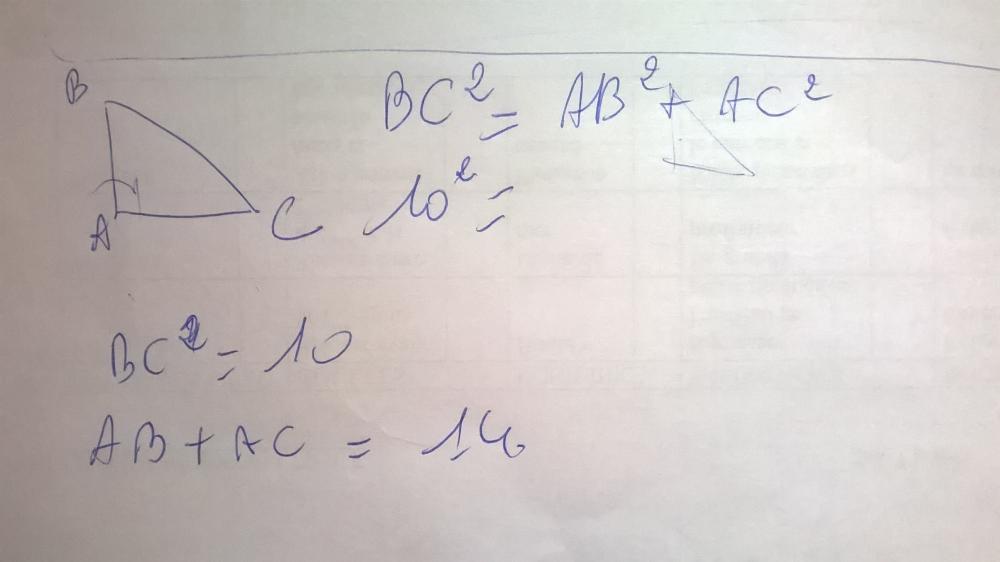 B
BC² = AB² + AC²
A
C
10² =
BC = 10
AB + AC = 14